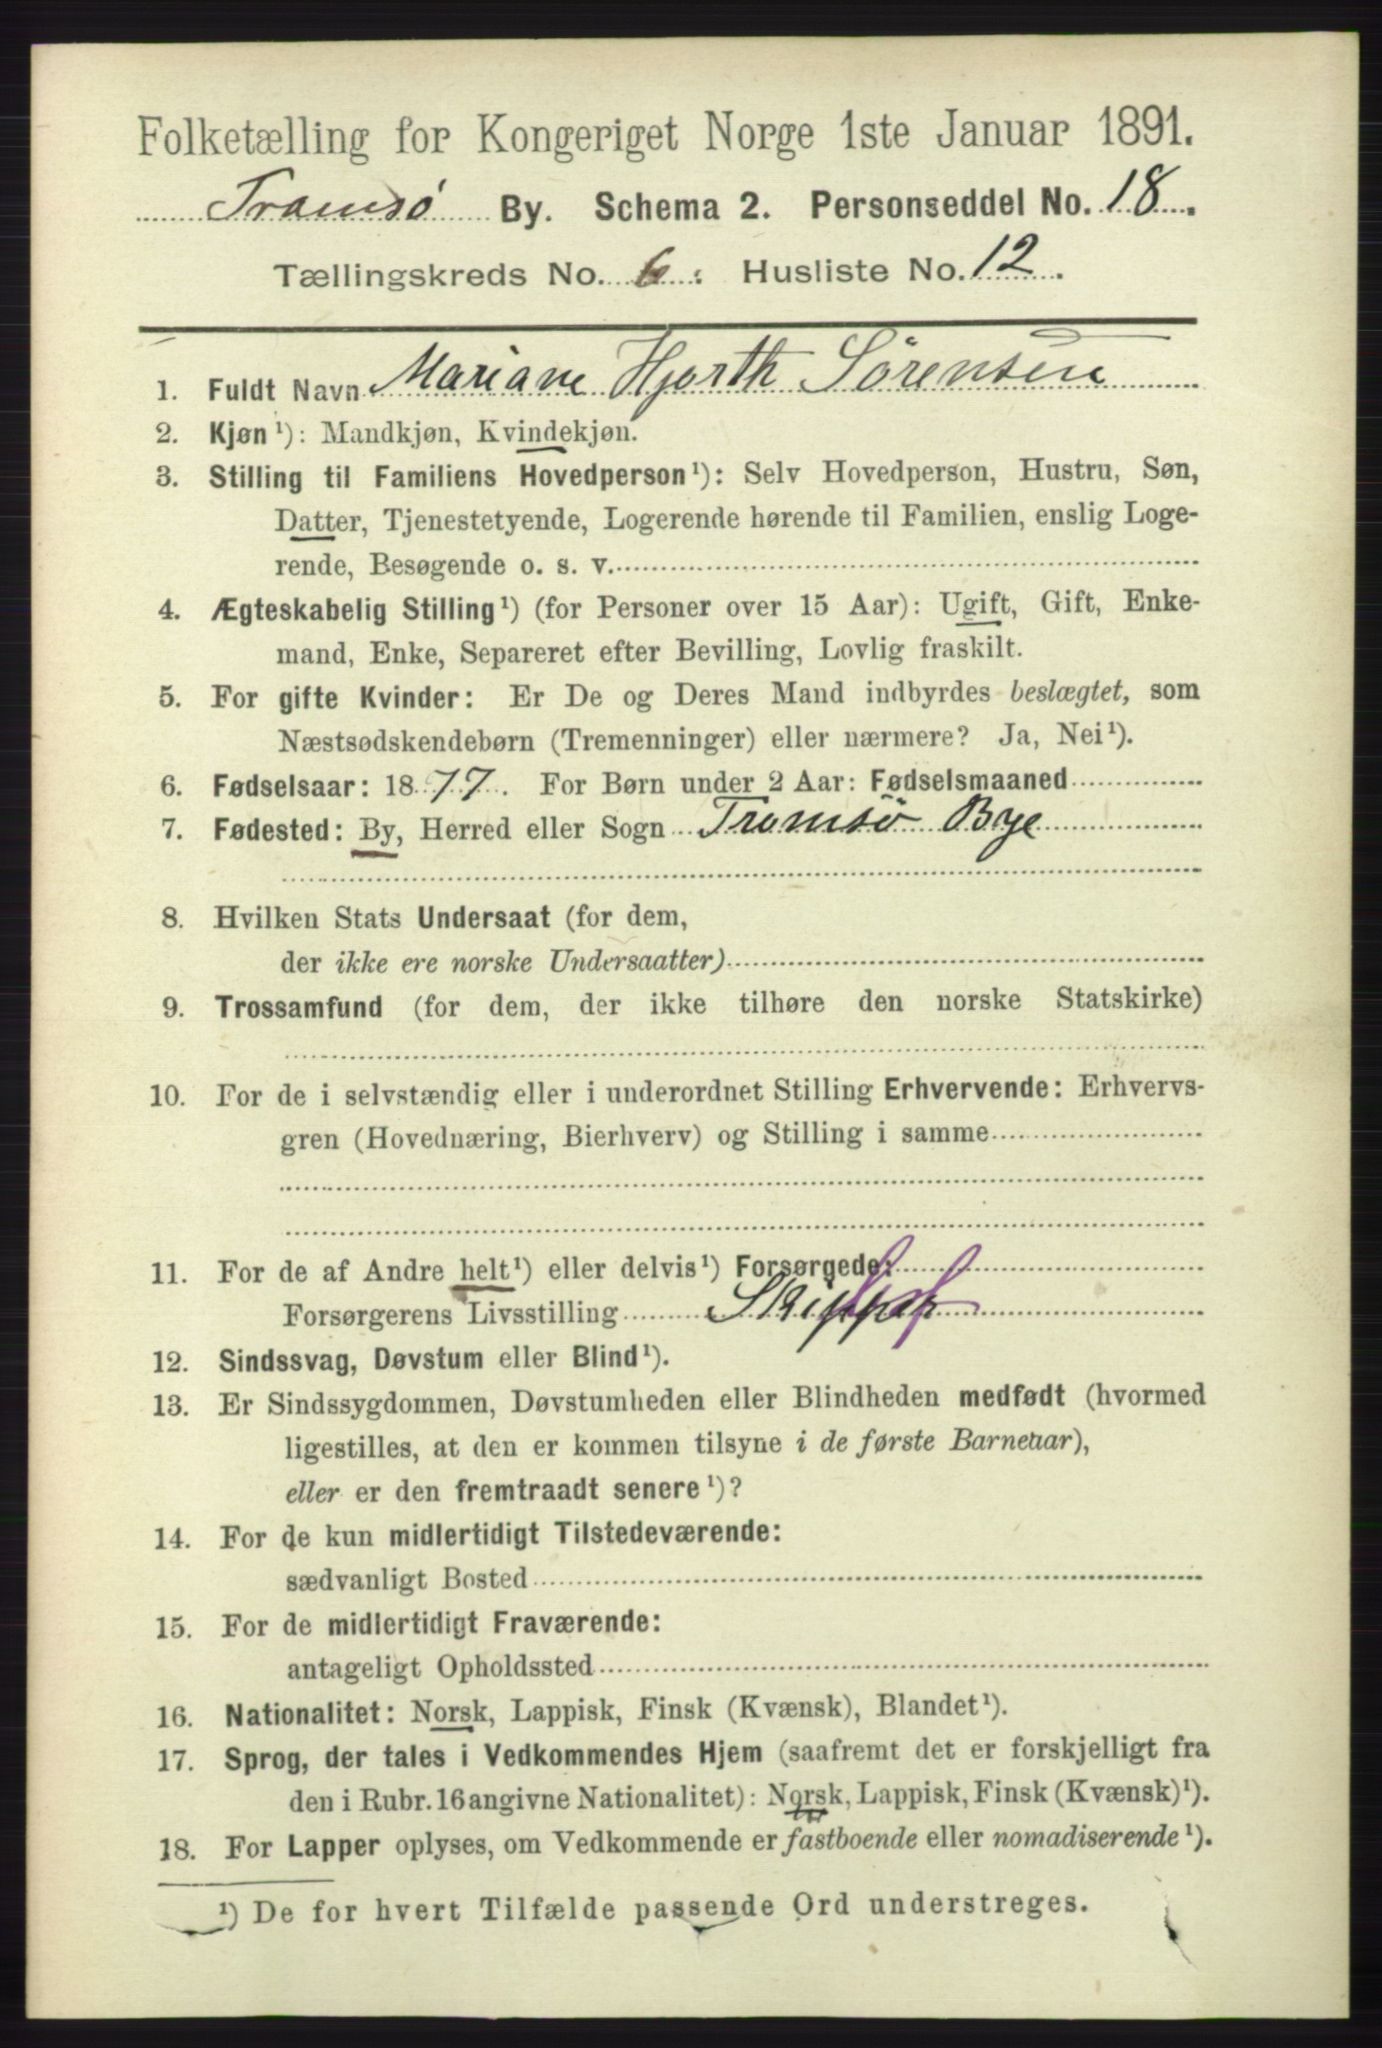 Folketælling for Kongeriget Norge 1ste Januar 1891.
Tromsø By. Schema 2. Personseddel No. 18.
Tællingskreds No. 6. Husliste No. 12.
1. Fuldt Navn Mariane Hjorth Sørensen
2. Kjøn¹): Mandkjøn, Kvindekjøn.
3. Stilling til Familiens Hovedperson¹): Selv Hovedperson, Hustru, Søn,
Datter, Tjenestetyende, Logerende hørende til Familien, enslig Loge-
rende, Besøgende o. s. v.
4. Ægteskabelig Stilling¹) (for Personer over 15 Aar): Ugift, Gift, Enke-
mand, Enke, Separeret efter Bevilling, Lovlig fraskilt.
5. For gifte Kvinder: Er De og Deres Mand indbyrdes beslægtet, som
Næstsødskendebørn (Tremenninger) eller nærmere? Ja, Nei¹).
6. Fødselsaar: 1877. For Børn under 2 Aar: Fødselsmaaned
7. Fødested: By, Herred eller Sogn Tromsø Bye
8. Hvilken Stats Undersaat (for dem,
der ikke ere norske Undersaatter)
9. Trossamfund (for dem, der ikke tilhøre den norske Statskirke)
10. For de i selvstændig eller i underordnet Stilling Erhvervende: Erhvervs-
gren (Hovednæring, Bierhverv) og Stilling i samme
11. For de af Andre helt¹) eller delvis¹) Forsørgede:
Forsørgerens Livsstilling Skipper
12. Sindssvag, Døvstum eller Blind¹).
13. Er Sindssygdommen, Døvstumheden eller Blindheden medfødt (hvormed
ligestilles, at den er kommen tilsyne i de første Barneaar),
eller er den fremtraadt senere¹)?
14. For de kun midlertidigt Tilstedeværende:
sædvanligt Bosted
15. For de midlertidigt Fraværende:
antageligt Opholdssted
16. Nationalitet: Norsk, Lappisk, Finsk (Kvænsk), Blandet¹).
17. Sprog, der tales i Vedkommendes Hjem (saafremt det er forskjelligt fra
den i Rubr. 16 angivne Nationalitet): Norsk, Lappisk, Finsk (Kvænsk)¹).
18. For Lapper oplyses, om Vedkommende er fastboende eller nomadiserende¹).
¹) De for hvert Tilfælde passende Ord understreges.